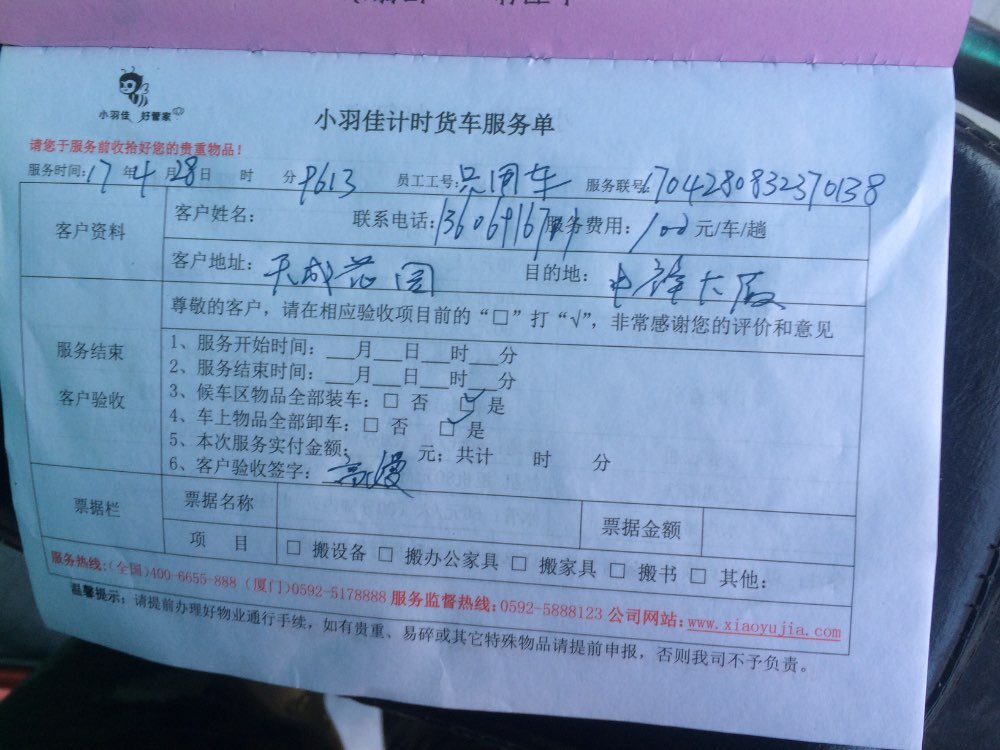 小羽佳 好管家
小羽佳计时货车服务单
请您于服务前收拾好您的贵重物品！
服务时间：17年4月28日 时 分 9613 员工工号：只用车 服务联号：1704280832370138
客户资料
客户姓名： 联系电话： 服务费用：100元/车/趟
客户地址：天成花园 目的地：大厦
尊敬的客户，请在相应验收项目前的“□”打“√”，非常感谢您的评价和意见
服务结束
客户验收
1、服务开始时间：___月___日___时___分
2、服务结束时间：___月___日___时___分
3、候车区物品全部装车：□ 否 ☑ 是
4、车上物品全部卸车：□ 否 ☑ 是
5、本次服务实付金额： 元；共计 时 分
6、客户验收签字：
票据栏
票据名称 票据金额
项 目 □ 搬设备 □ 搬办公家具 □ 搬家具 □ 搬书 □ 其他：
服务热线：(全国)400-6655-888 (厦门)0592-5178888 服务监督热线：0592-5888123 公司网站：www.xiaoyujia.com
温馨提示：请提前办理好物业通行手续，如有贵重、易碎或其它特殊物品请提前申报，否则我司不予负责。